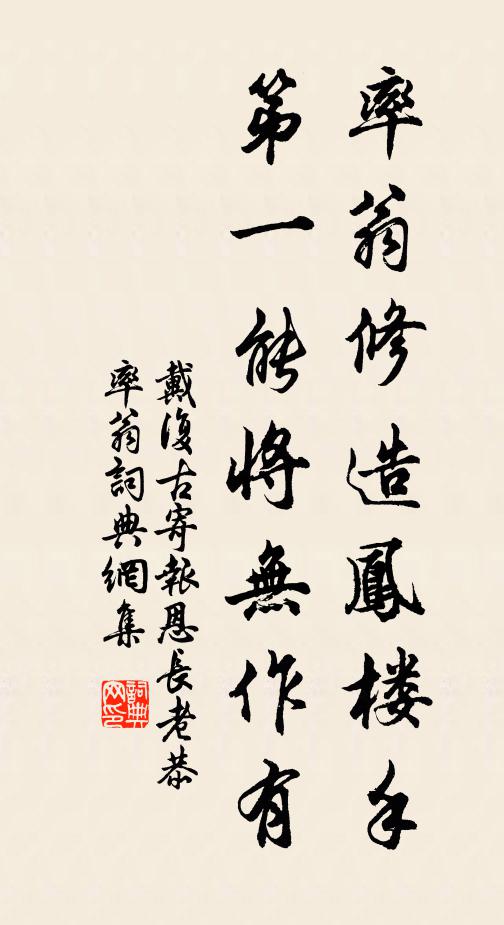 率翁修造鳳楼手
第一能將無作有
戴復古寄報恩長老恭
率翁詞典網集
詞典网印